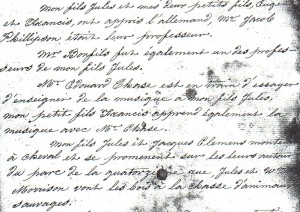 mon fils Jules et mes deux petits fils, Eugène
et Francis, ont appris l'allemand, Mr. Jacob
Phillipson étant leur professeur.
Mr. Bonfils fut également un des profes-
seurs de mon fils Jules.
Mr. Edouard Chase est en train d'essayer
d'enseigner de la musique à mon fils Jules,
mon petit fils Francis apprend également la
musique avec Mr. Chase.
Mon fils Jules et Jacques Clemens monte
à cheval et se promenent sur les leurs autour
du parc de la quatorzième que Jules et W
Morrison vont les bois à la chasse d'animaux
sauvages.